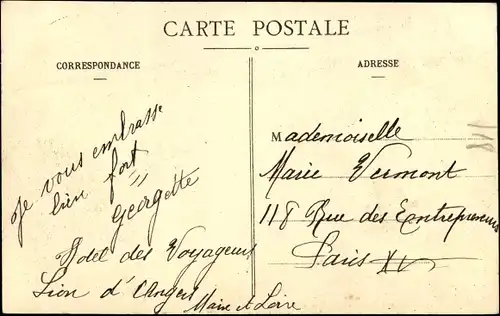 CARTE POSTALE
CORRESPONDANCE
ADRESSE
Je vous embrasse
bien fort
Georgette
Hotel des Voyageurs
Lion d'Angers
Maine et Loire
Mademoiselle
Marie Vermont
118 Rue des Entrepreneurs
Paris XV
118